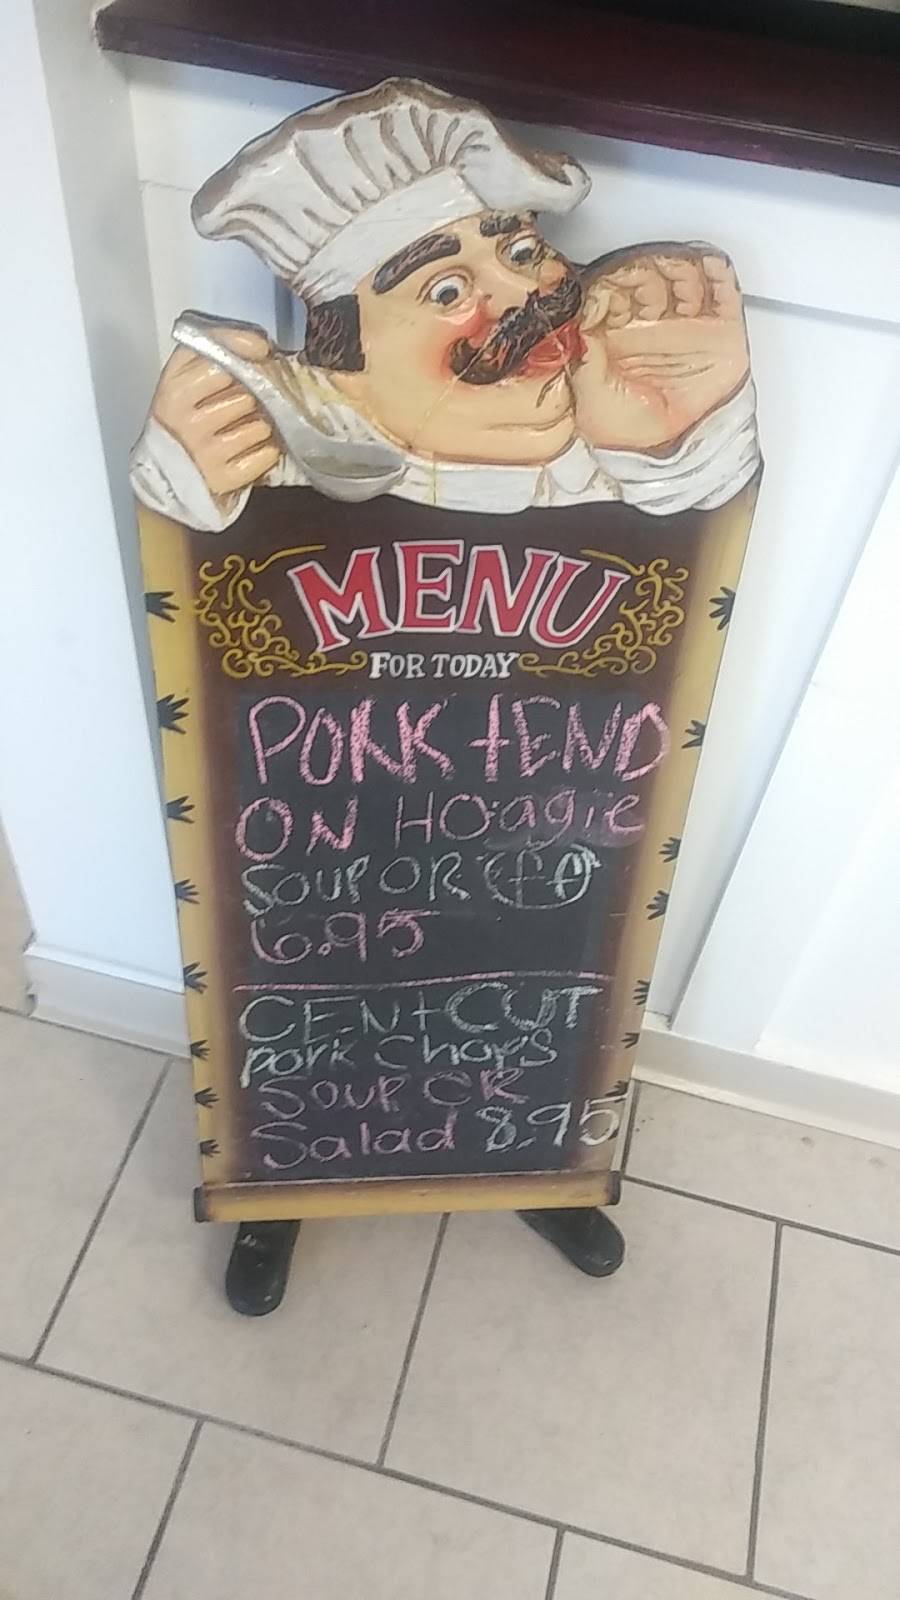 MENU
FOR TODAY
PORK tEND
ON HOagie
SOUP OR FF
6.95
CENtCUT
pork Chops
SOUP OR
Salad 8.95